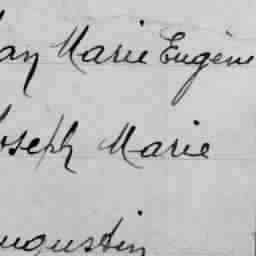 an Marie Eugène
Joseph Marie
Augustin